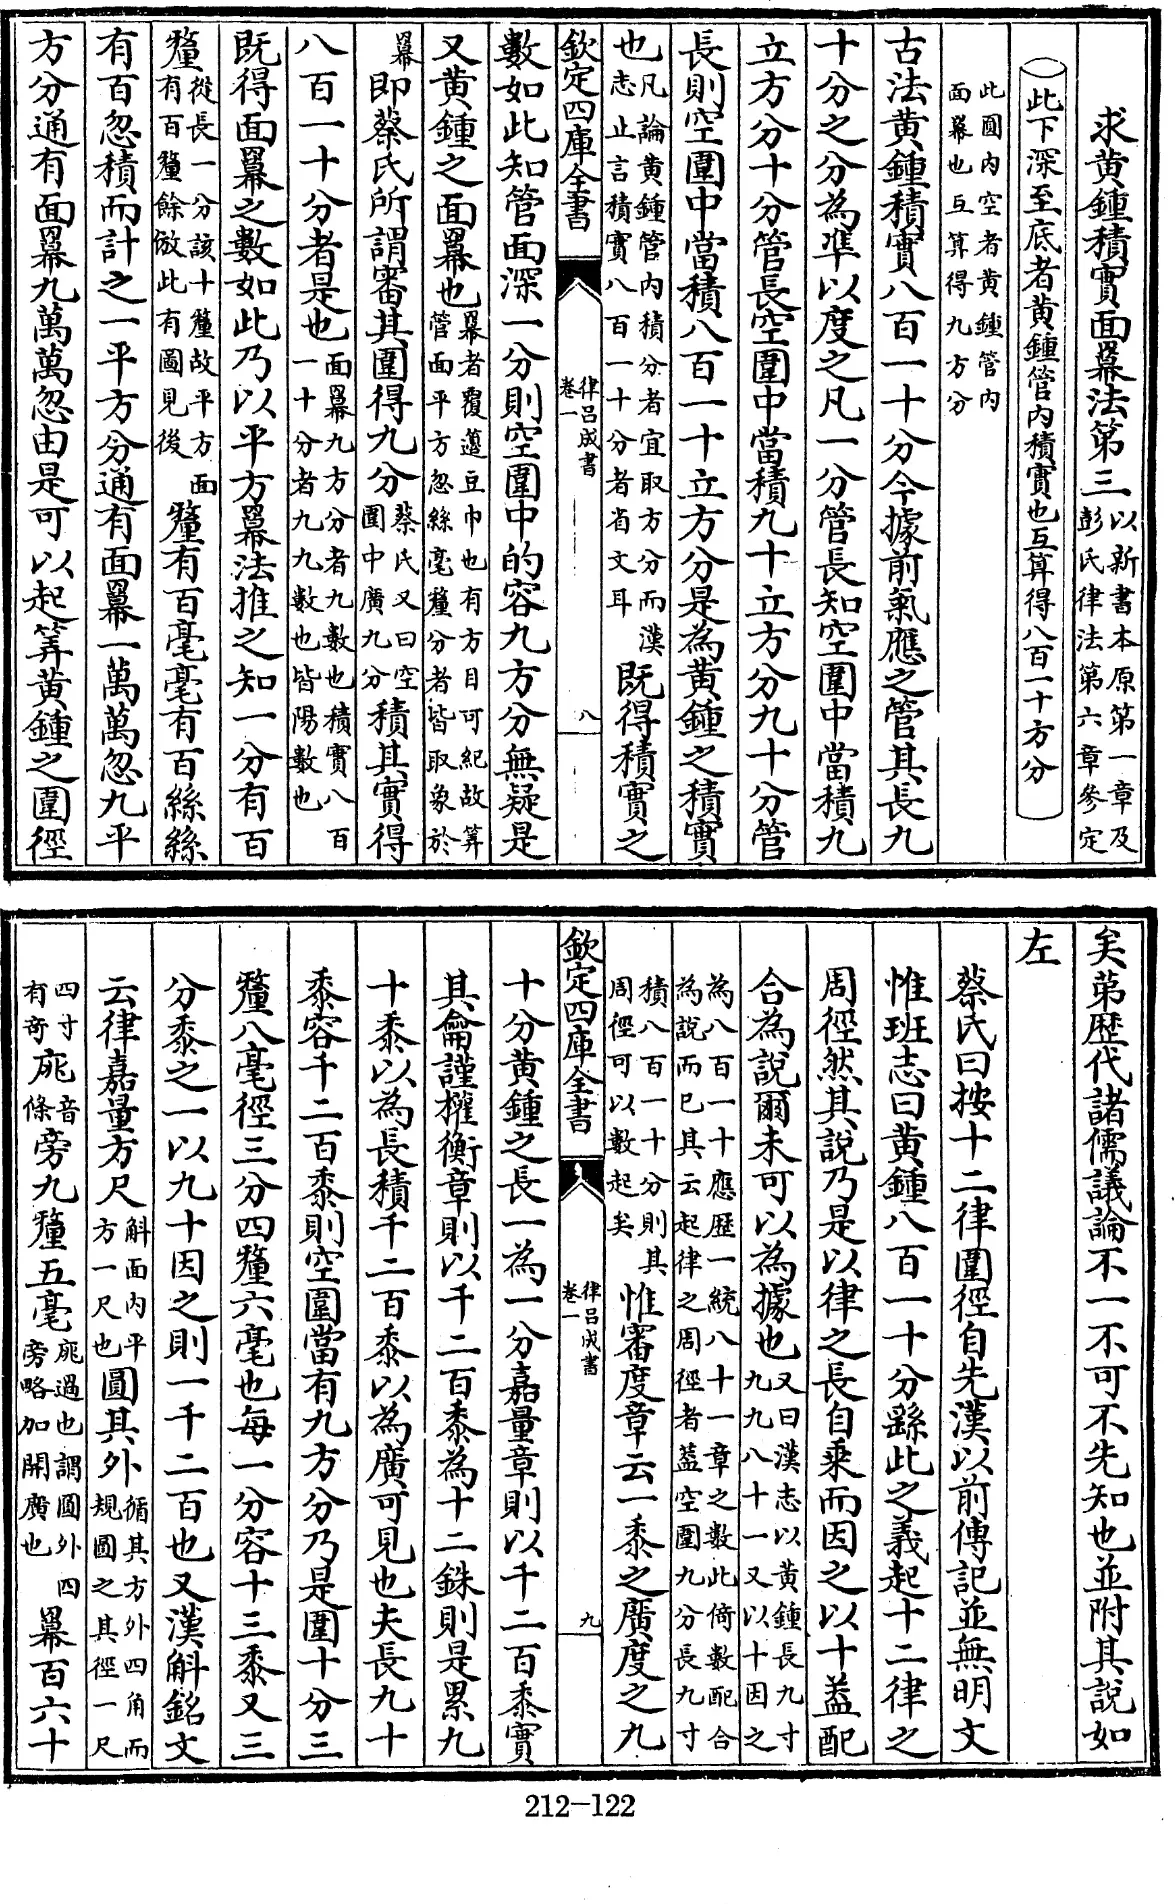 求黄鍾積實面羃法第三以新書本原第一章及彭氏律法第六章參定
此下深至底者黄鍾管内積實也互算得八百一十方分
此圓内空者黄鍾管内面羃也互算得九方分
古法黄鍾積實八百一十分今據前氣應之管其長九
十分之分為凖以度之凡一分管長知空圍中當積九
立方分十分管長空圍中當積九十立方分九十分管
長則空圍中當積八百一十立方分是為黄鍾之積實
也凡論黄鍾管内積分者宜取方分而漢志止言積實八百一十分者省文耳既得積實之
欽定四庫全書
律吕成書
卷一
八
數如此知管面深一分則空圍中的容九方分無疑是
又黄鍾之面羃也羃者覆籩豆巾也有方目可紀故筭管面平方忽絲毫釐分者皆取象於
羃即蔡氏所謂審其圍得九分蔡氏又曰空圍中廣九分積其實得
八百一十分者是也面羃九方分者九數也積實八百一十分者九九數也皆陽數也
既得面羃之數如此乃以平方羃法推之知一分有百
釐從長一分該十釐故平方面有百釐餘倣此有圖見後釐有百毫毫有百絲絲
有百忽積而計之一平方分通有面羃一萬萬忽九平
方分通有面羃九萬萬忽由是可以起筭黄鍾之圍徑
矣苐歴代諸儒議論不一不可不先知也並附其說如
左
蔡氏曰按十二律圍徑自先漢以前傳記並無明文
惟班志曰黄鍾八百一十分繇此之義起十二律之
周徑然其說乃是以律之長自乘而因之以十葢配
合為說爾未可以為據也又曰漢志以黄鍾長九寸九九八十一又以十因之
為八百一十應歴一統八十一章之數此倚數配合為說而已其云起律之周徑者葢空圍九分長九寸
積八百一十分則其周徑可以數起矣惟審度章云一黍之廣度之九
欽定四庫全書
律吕成書
卷一
九
十分黄鍾之長一為一分嘉量章則以千二百黍實
其龠謹權衡章則以千二百黍為十二銖則是累九
十黍以為長積千二百黍以為廣可見也夫長九十
黍容千二百黍則空圍當有九方分乃是圍十分三
釐八毫徑三分四釐六毫也每一分容十三黍又三
分黍之一以九十因之則一千二百也又漢斛銘文
云律嘉量方尺斛面内平方一尺也圓其外循其方外四角而規圓之其徑一尺
四寸有奇庣音條旁九釐五毫庣過也謂圓外四旁略加開廣也羃百六十
212-122